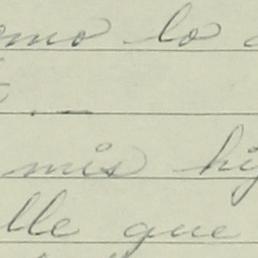 emo lo
mis hij
lle que